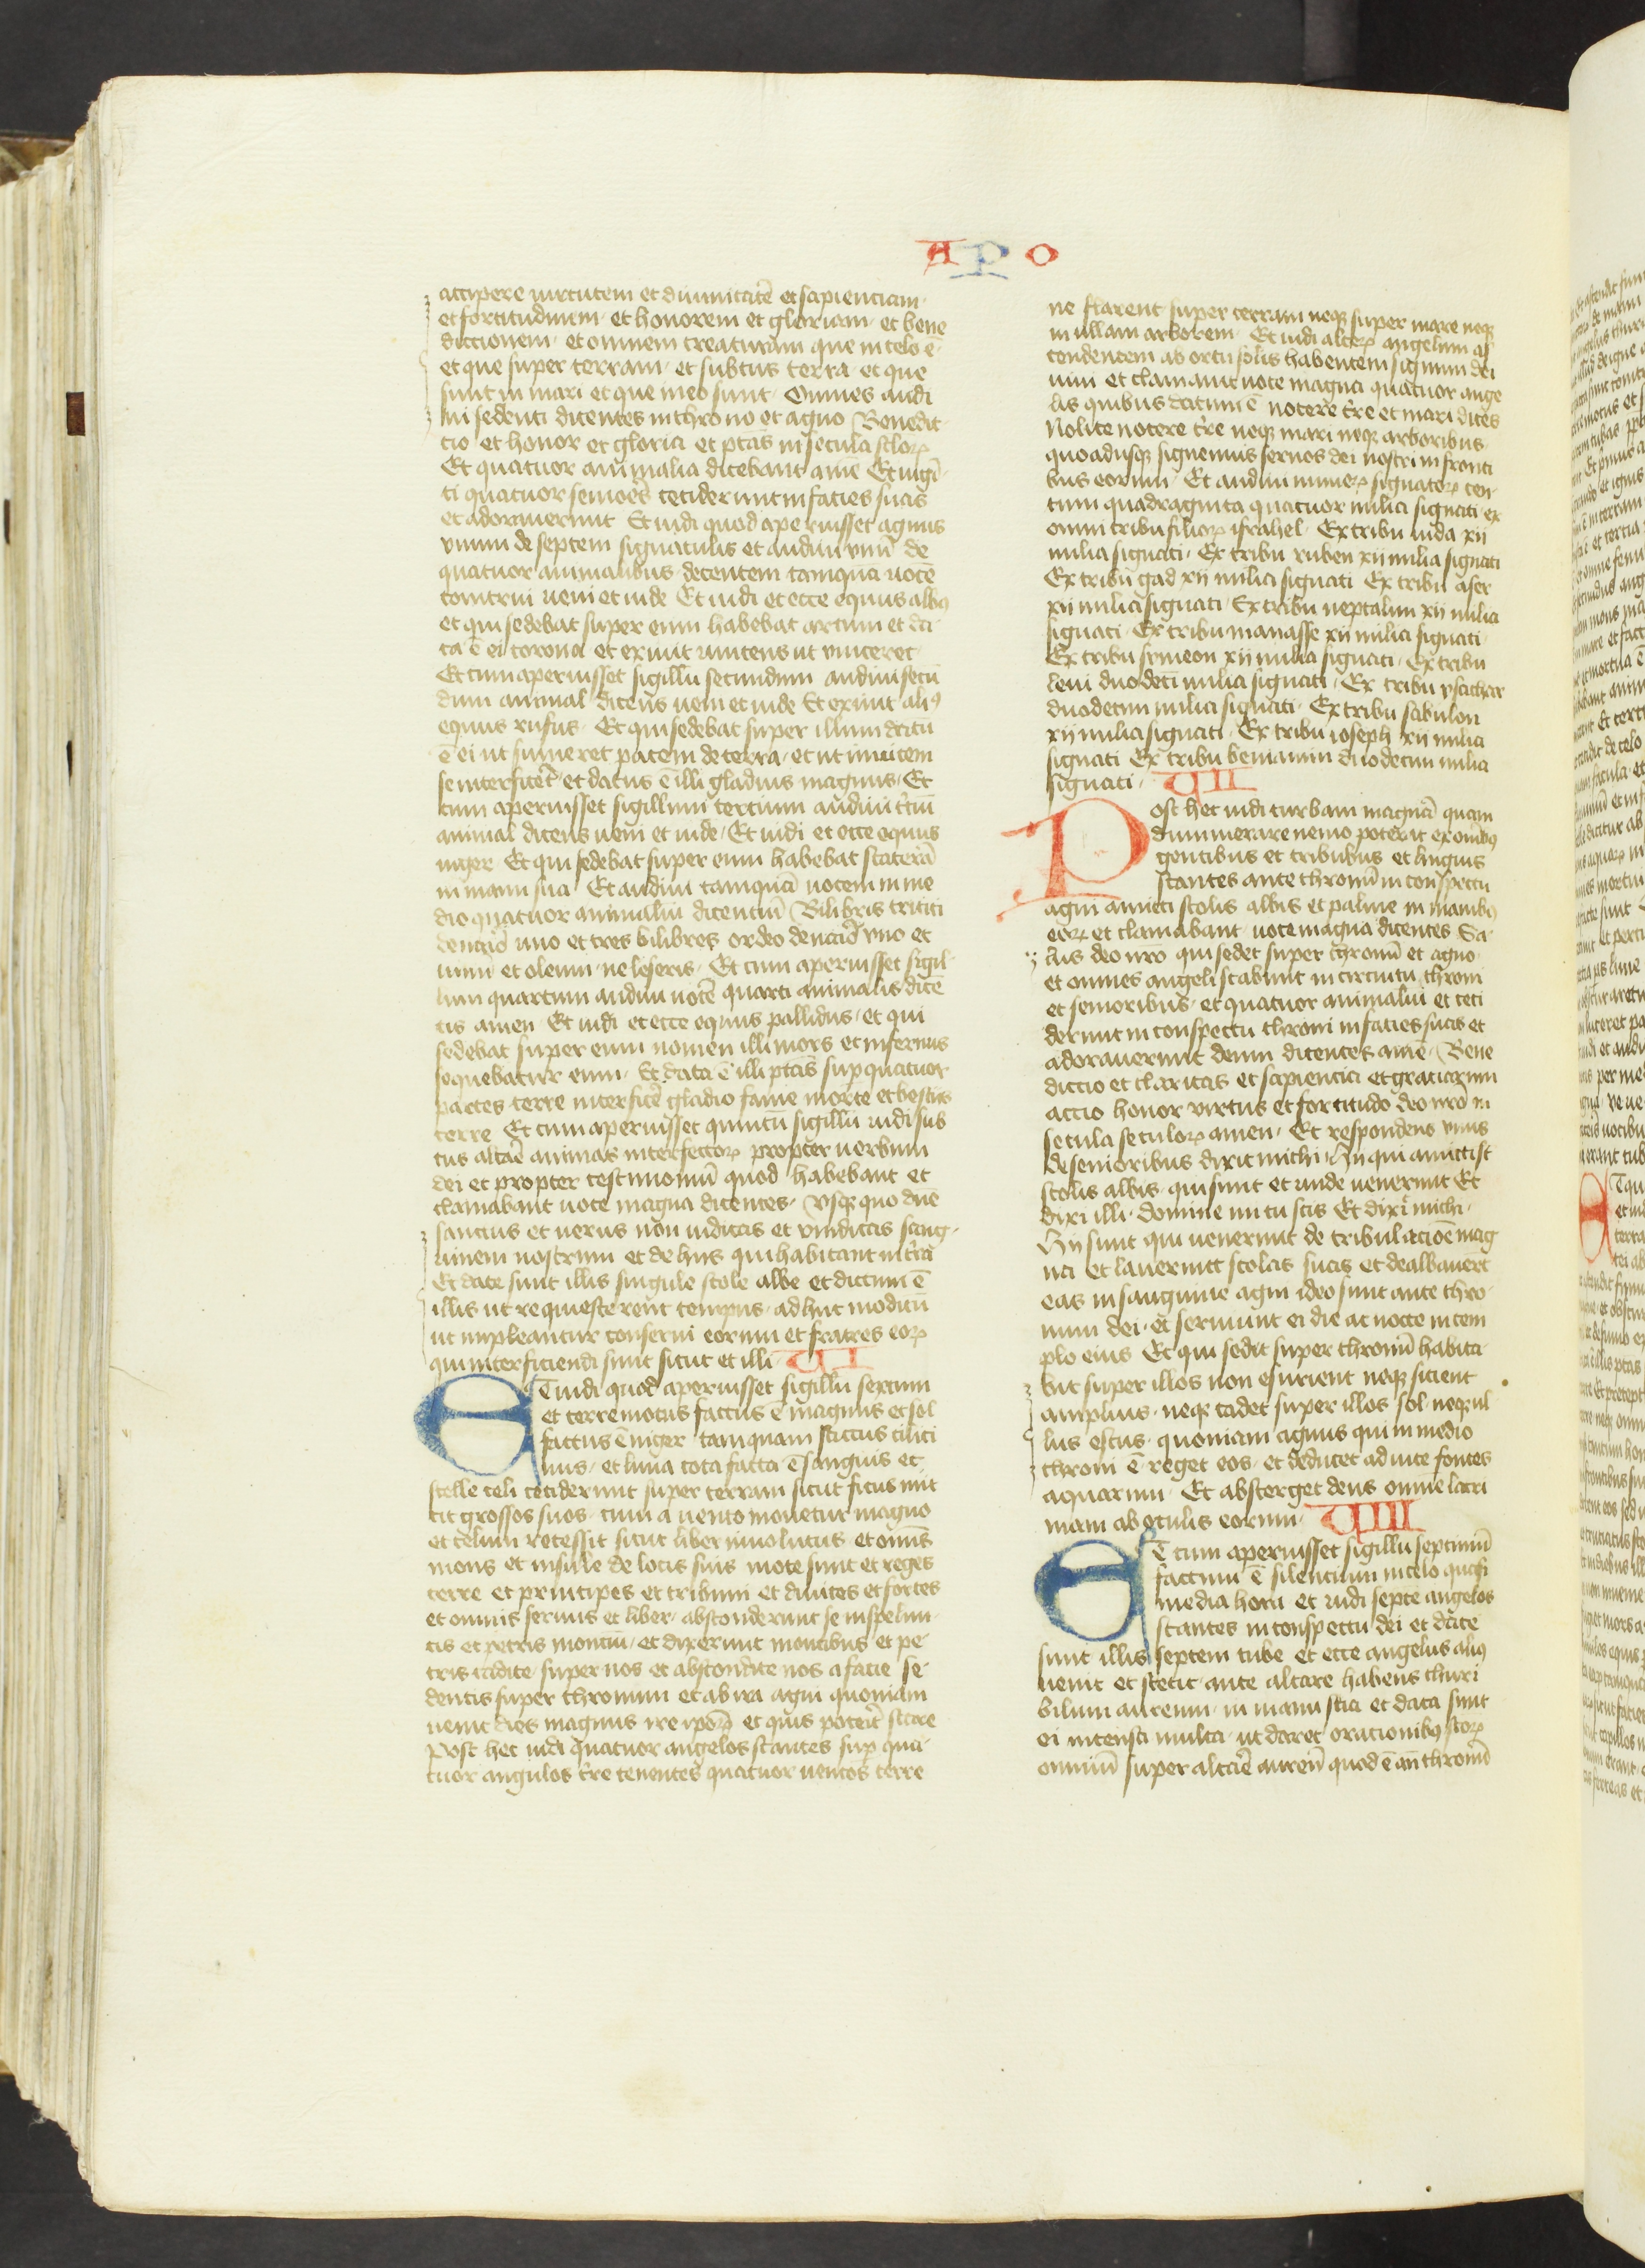 APO
accipere uirtutem et diuinitatē et sapienciam
et fortitudinem et honorem et gloriam et bene
dictionem et omnem creaturam que in celo ē
et que super terram et subtus terra et que
sunt in mari et que in eo sunt Omnes audi
ui sedenti dicentes in throno et agno Benedic
cio et honor et gloria et ptās in secula sclorꝝ
Et quatuor animalia dicebant amē Et uigī
ti quatuor senioēs ceciderunt in facies suas
et adorauerunt Et uidi quod aperuisset agnus
vnum de septem signaculis et audiui vnū de
quatuor animalibus decentem tamquā uocē
tonitrui ueni et uide Et uidi et ecce equus albꝰ
et qui sedebat super eum habebat arcum et da
ta ē ei corona et exiuit uincens ut vinceret
Et cum aperuisset sigillū secundum audiui secū
dum animal dicens ueni et uide Et exiuit aliꝰ
equus rufus Et qui sedebat super illum datū
ē ei ut sumeret pacem de terra et ut inuicem
se interficēt et datus ē illi gladius magnus Et
cum aperuisset sigillum tercium audiui t̄ciū
animal dicens ueni et uide Et uidi et ecce equus
niger Et qui sedebat super eum habebat staterā
in manu sua Et audiui tamquā uocem in me
dio quatuor animaliū dicenciū Bilibris tritici
denario uno et tres bilibres ordeo denario vno et
uinū et oleum ne leseris Et cum aperuisset sigil
lum quartum audiui uocē quarti animalis dicē
tis amen Et uidi et ecce equus pallidus et qui
sedebat super eum nomen illi mors et infernus
sequebatur eum Et data ē illi ptās suꝑ quatuor
partes terre interficē gladio fame morte et bestiis
terre Et cum aperuisset quintū sigillū uidi sub
tus altaē animas interfectorꝝ propter uerbum
dei et propter testimoniū quod habebant et
clamabant uoce magna dicentes Vsqꝫ quo dn̄e
sanctus et uerus non iudicas et vindicas sang
uinem nostrum et de hiis qui habitant in t̄ra
Et date sunt illis singule stole albe et dictum ē
illis ut requiescerent tempus adhuc modicū
ut impleantur conserui eorum et fratres eorꝝ
qui interficiendi sunt sicut et illi VI
Et uidi quod aperuisset sigillū sextum
et terremotus factus ē magnus et sol
factus ē niger tamquam saccus cilici
nus et luna tota facta ē sanguis et
stelle celi ceciderunt super terram sicut ficus mit
tit grossos suos cum a uento mouetur magno
et celum recessit sicut liber inuolutus et omīs
mons et insule de locis suis mote sunt et reges
terre et principes et tribuni et diuites et fortes
et omnis seruus et liber absconderunt se in spelun
cis et petris monciū et dixerunt montibus et pe
tris cadite super nos et abscondite nos a facie se
dentis super thronum et ab ira agni quoniam
uenit dies magnus ire ipōꝝ et quis poterīt stare
Post hec uidi quatuor angelos stantes suꝑ qua
tuor angulos t̄re tenentes quatuor uentos terre
ne flarent super terram neqꝫ super mare neqꝫ
in ullam arborem Et uidi alterꝝ angelum as
cendentem ab ortu solis habentem signum dei
uiui et clamauit uoce magna quatuor ange
lis quibus datum ē nocere t̄re et mari dicēs
Nolite nocere t̄re neqꝫ mari neqꝫ arboribus
quoadusqꝫ signemus seruos dei nostri in fronti
bus eorum Et audiui numerꝝ signatorꝝ cen
tum quadraginta quatuor milia signati ex
omni tribu filiorꝝ israhel Ex tribu iuda xii
milia signati Ex tribu ruben xii milia signati
Ex tribu gad xii milia signati Ex tribu aser
xii milia signati Ex tribu neptalim xii milia
signati Ex tribu manasse xii milia signati
Ex tribu symeon xii milia signati Ex tribu
leui duodeci milia signati Ex tribu ysachar
duodecim milia signati Ex tribu sabulon
xii milia signati Ex tribu ioseph xii milia
signati Ex tribu beniamin duodecim milia
signati VII
Post hec uidi turbam magnā quam
dinumerare nemo poterat ex omībꝰ
gentibus et tribubus et linguis
stantes ante thronū in conspectu
agni amicti stolis albis et palme in manibꝰ
eorꝝ et clamabant uoce magna dicentes Sa
lus deo nr̄o qui sedet super thronū et agno
et omnes angeli stabant in circuitu throni
et senioribus et quatuor animaliū et ceci
derunt in conspectu throni in facies suas et
adorauerunt deum dicentes amē Bene
diccio et claritas et sapiencia et graciarum
accio honor virtus et fortitudo deo nr̄o in
secula seculorꝝ amen Et respondens vnus
de senioribus dixit michi Hii qui amicti st̄
stolis albis qui sunt et unde uenerunt Et
dixi illi domine mi tu scis Et dixit michi
Hii sunt qui uenerunt de tribulacioē mag
na et lauerunt stolas suas et dealbauerūt
eas in sanguine agni ideo sunt ante thro
num dei et seruiunt ei die ac nocte in tem
plo eius Et qui sedit super thronū habita
bit super illos non esurient neqꝫ sicient
amplius neqꝫ cadet super illos sol neqꝫ ul
lus estus quoniam agnus qui in medio
throni ē reget eos et deducet ad uite fontes
aquarum Et absterget deus omnē lacri
mam ab oculis eorum VIII
Et cum aperuisset sigillū septimū
factum ē silencium in celo quasi
media hora et uidi septē angelos
stantes in conspectu dei et date
sunt illis septem tube et ecce angelus aliꝰ
uenit et stetit ante altare habens thuri
bilum aureum in manu sua et data sunt
ei incensa multa ut daret orationibꝰ scorꝝ
omniū super altaē aureū quod ē an̄ thronū